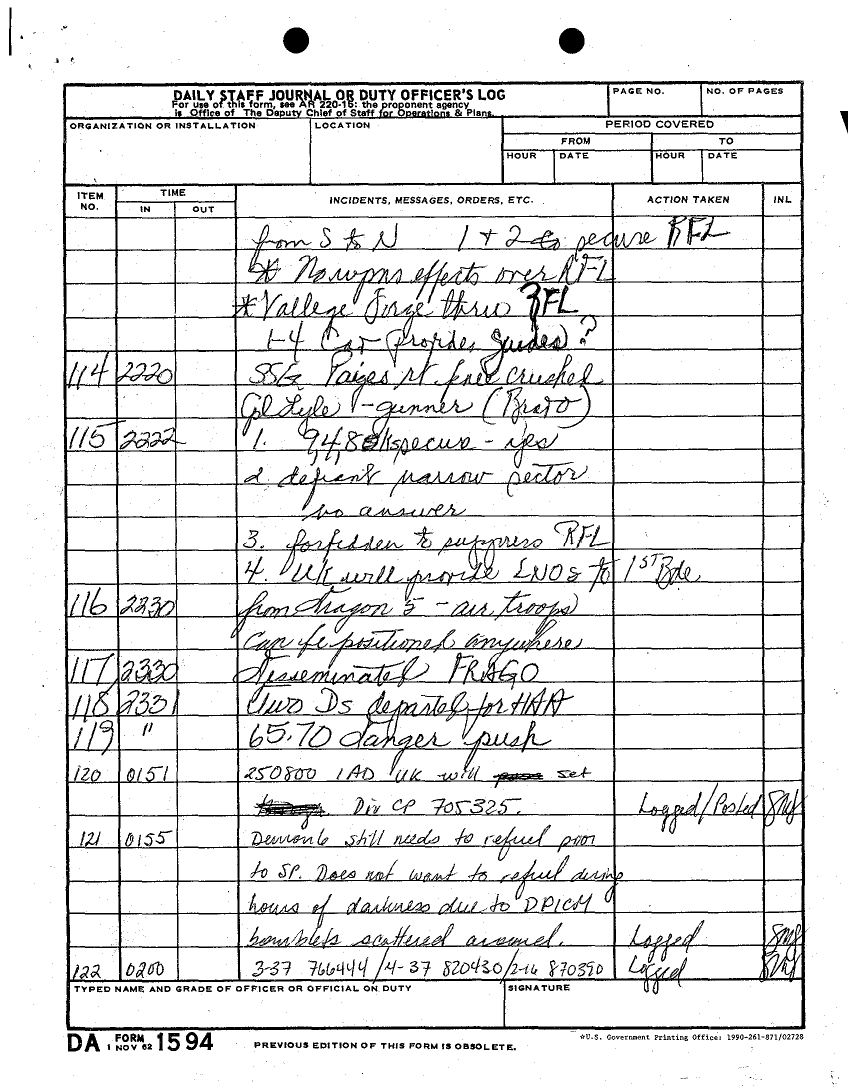 DAILY STAFF JOURNAL OR DUTY OFFICER'S LOG
For use of this form, see AR 220-15: the proponent agency
is Office of The Deputy Chief of Staff for Operations & Plans.
PAGE NO.
NO. OF PAGES
ORGANIZATION OR INSTALLATION
LOCATION
PERIOD COVERED
FROM
TO
HOUR
DATE
HOUR
DATE
ITEM NO.
TIME
IN
OUT
INCIDENTS, MESSAGES, ORDERS, ETC.
ACTION TAKEN
INL
from S to N 1 + 2 to secure RFL
* No wpns effects over RFL
* Vallege Forge thru RFL
1-4 Cav provides guides ?
114 2220 SSG Paiges rt. knee crushed
Cpl Lyle - gunner (Bravo)
115 2222 1. secure - yes
2. defiant narrow sector
no answer
3. forbidden to suppress RFL
4. UK will provide LNOs to 1ST Bde.
116 2230 from Dragon 5 - air troops
can be positioned anywhere
117 2330 disseminated FRAGO
118 2331 Two Ds departed for HAA
119 " 65.70 danger push
120 0151 250800 1AD UK will set
Div CP 705325. Logged/Posted
121 0155 Demon 6 still needs to refuel prior
to SP. Does not want to refuel during
hours of darkness due to DPICM
bomblets scattered around. Logged
122 0200 3-37 766444 / 4-37 820430 / 2-16 870390 Logged
TYPED NAME AND GRADE OF OFFICER OR OFFICIAL ON DUTY
SIGNATURE
DA FORM 1 NOV 62 1594
PREVIOUS EDITION OF THIS FORM IS OBSOLETE.
*U.S. Government Printing Office: 1990-261-871/02728